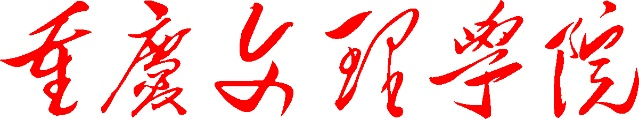 重慶文理學院